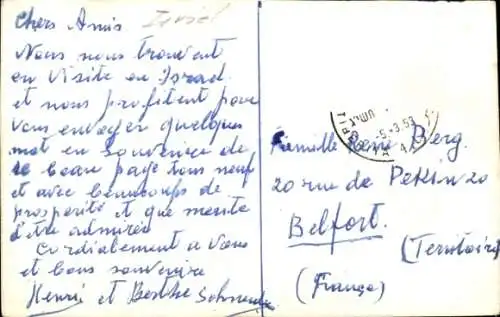 Chers Amis
Israel
Nous nous trouvent
en Visite en Israel
et nous profitent pour
vous envoyer quelques
mot en souvenire de
le beau paye tous neuf
et avec beaucoups de
prosperité et que merite
d'être admirée
Cordialement a vous
et bons souvenire
Henri et Berthe
-5-3.53
Famille René Berg
20 rue de Pekin 20
Belfort.
(Territoire)
(France)